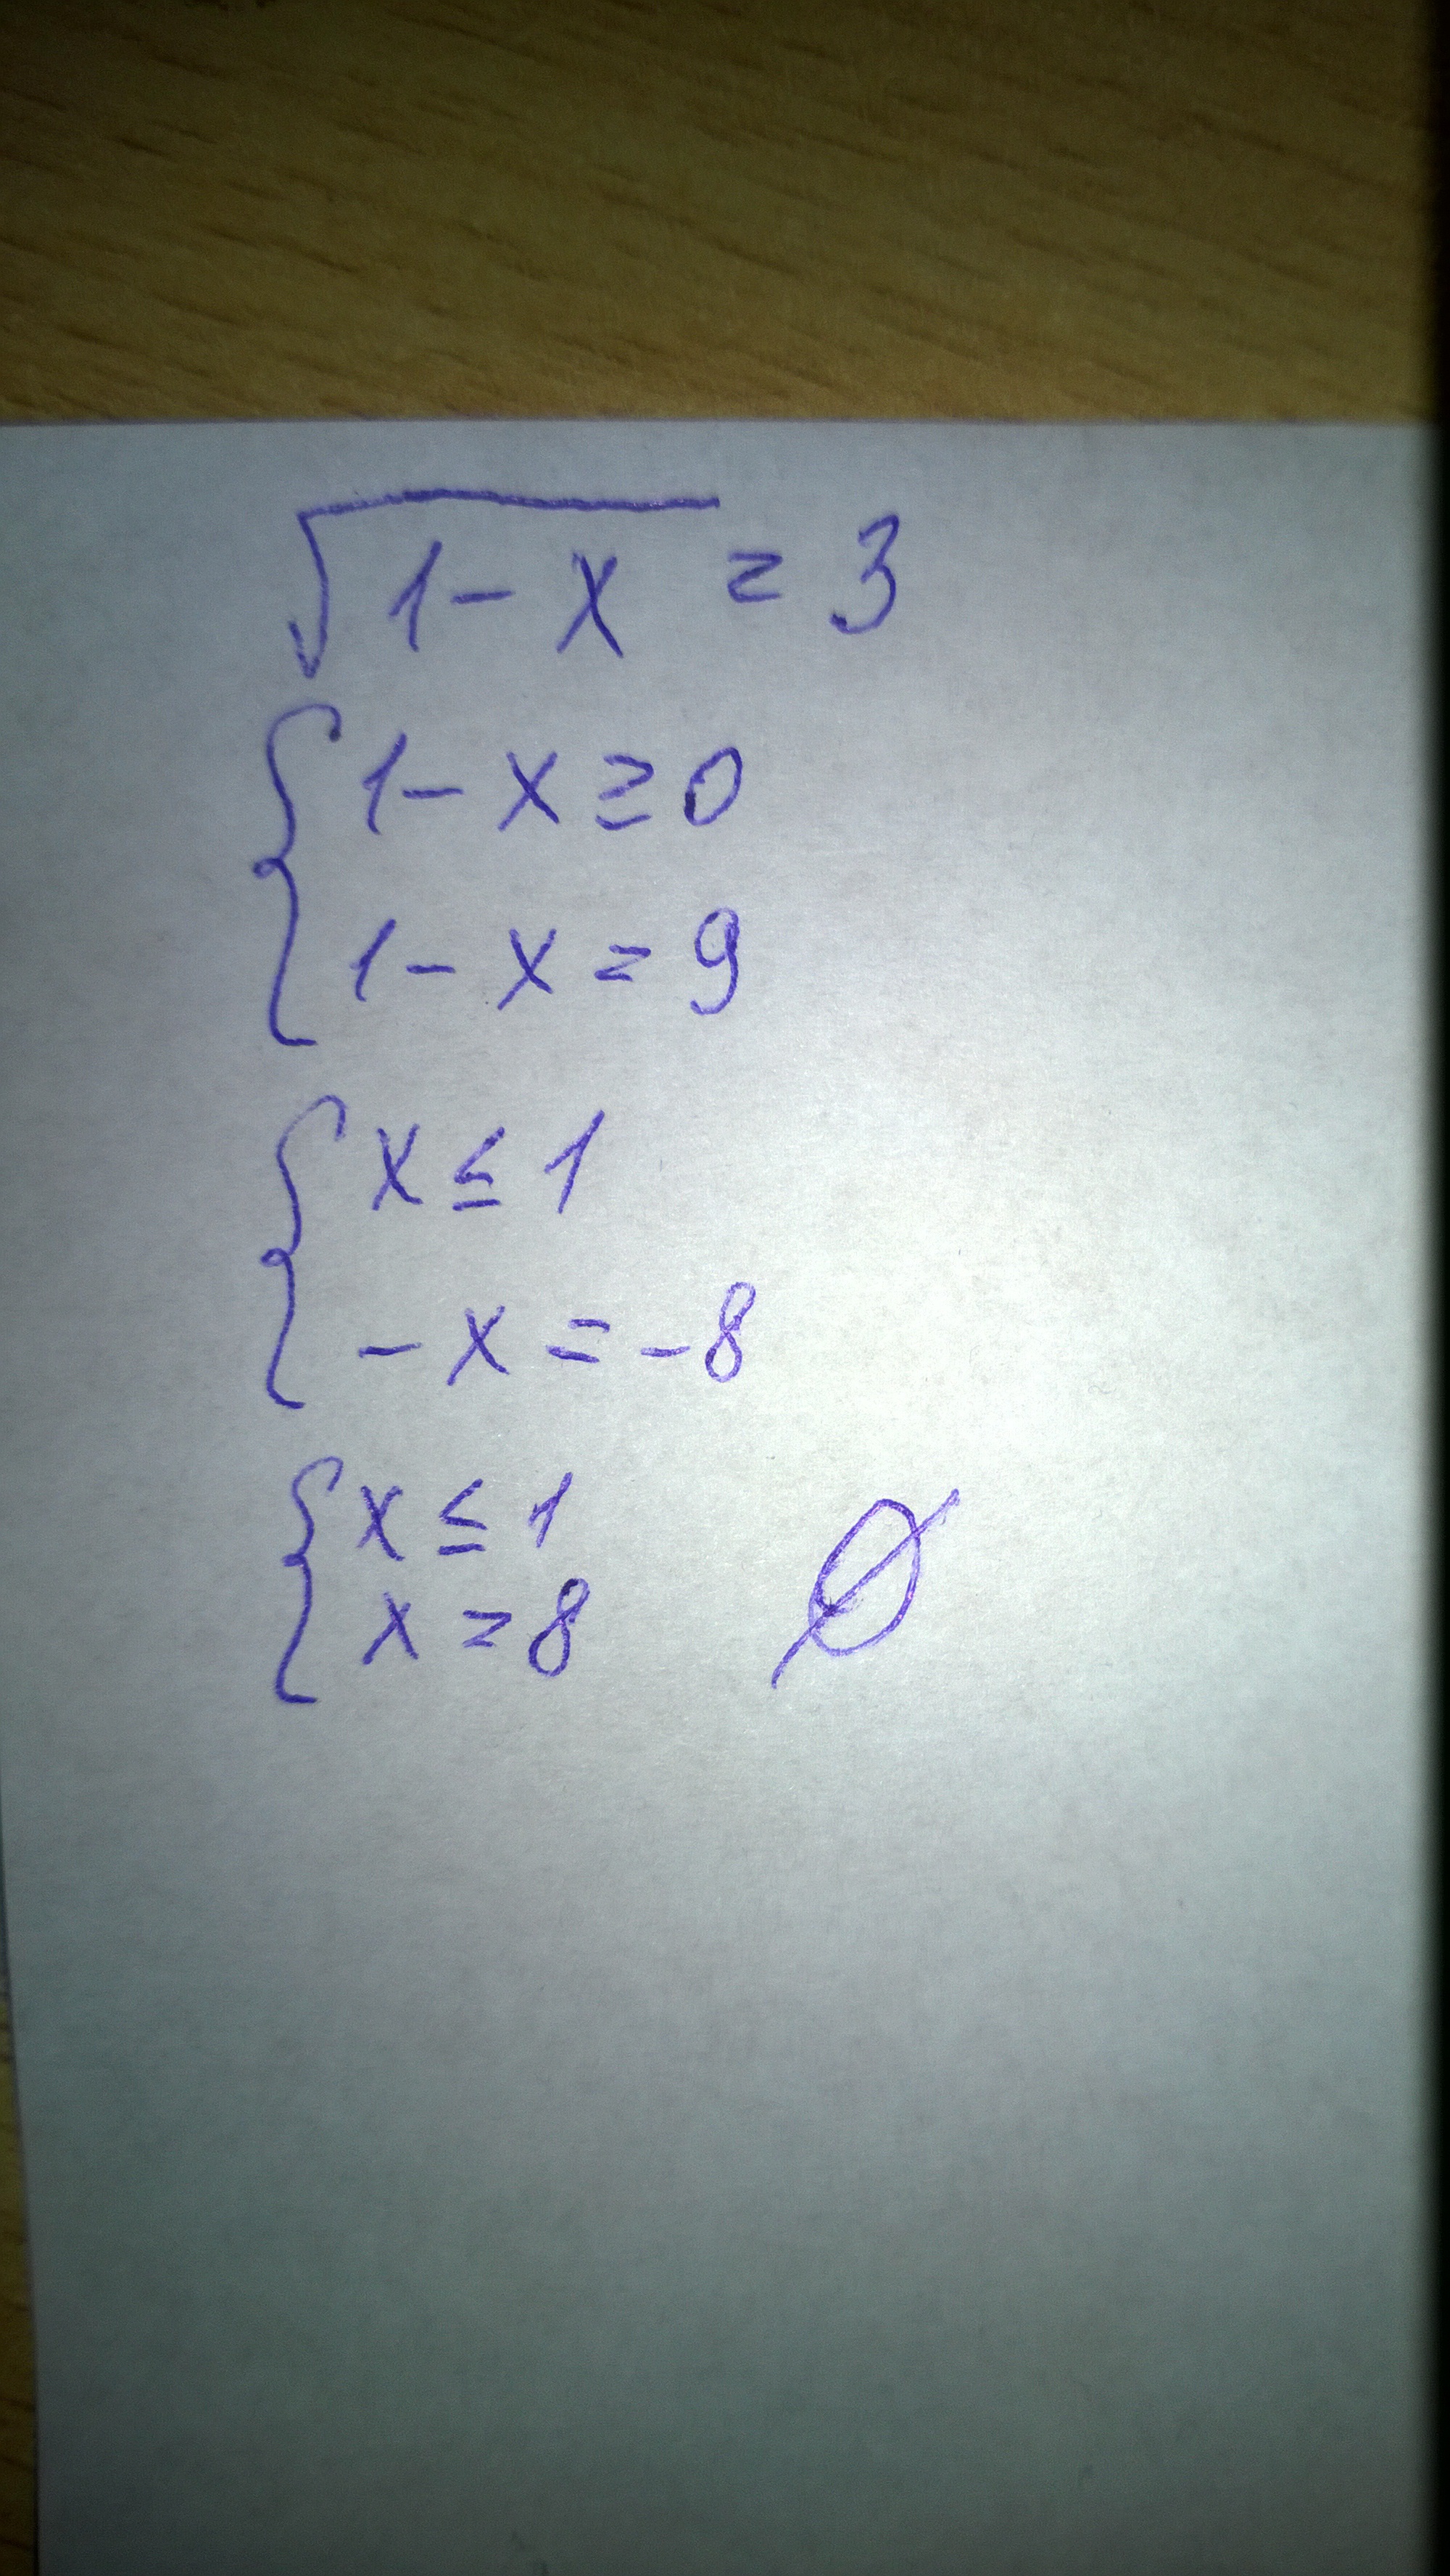 √(1 - x) = 3
{ 1 - x ≥ 0
1 - x = 9
{ x ≤ 1
- x = -8
{ x ≤ 1
x = 8 ∅